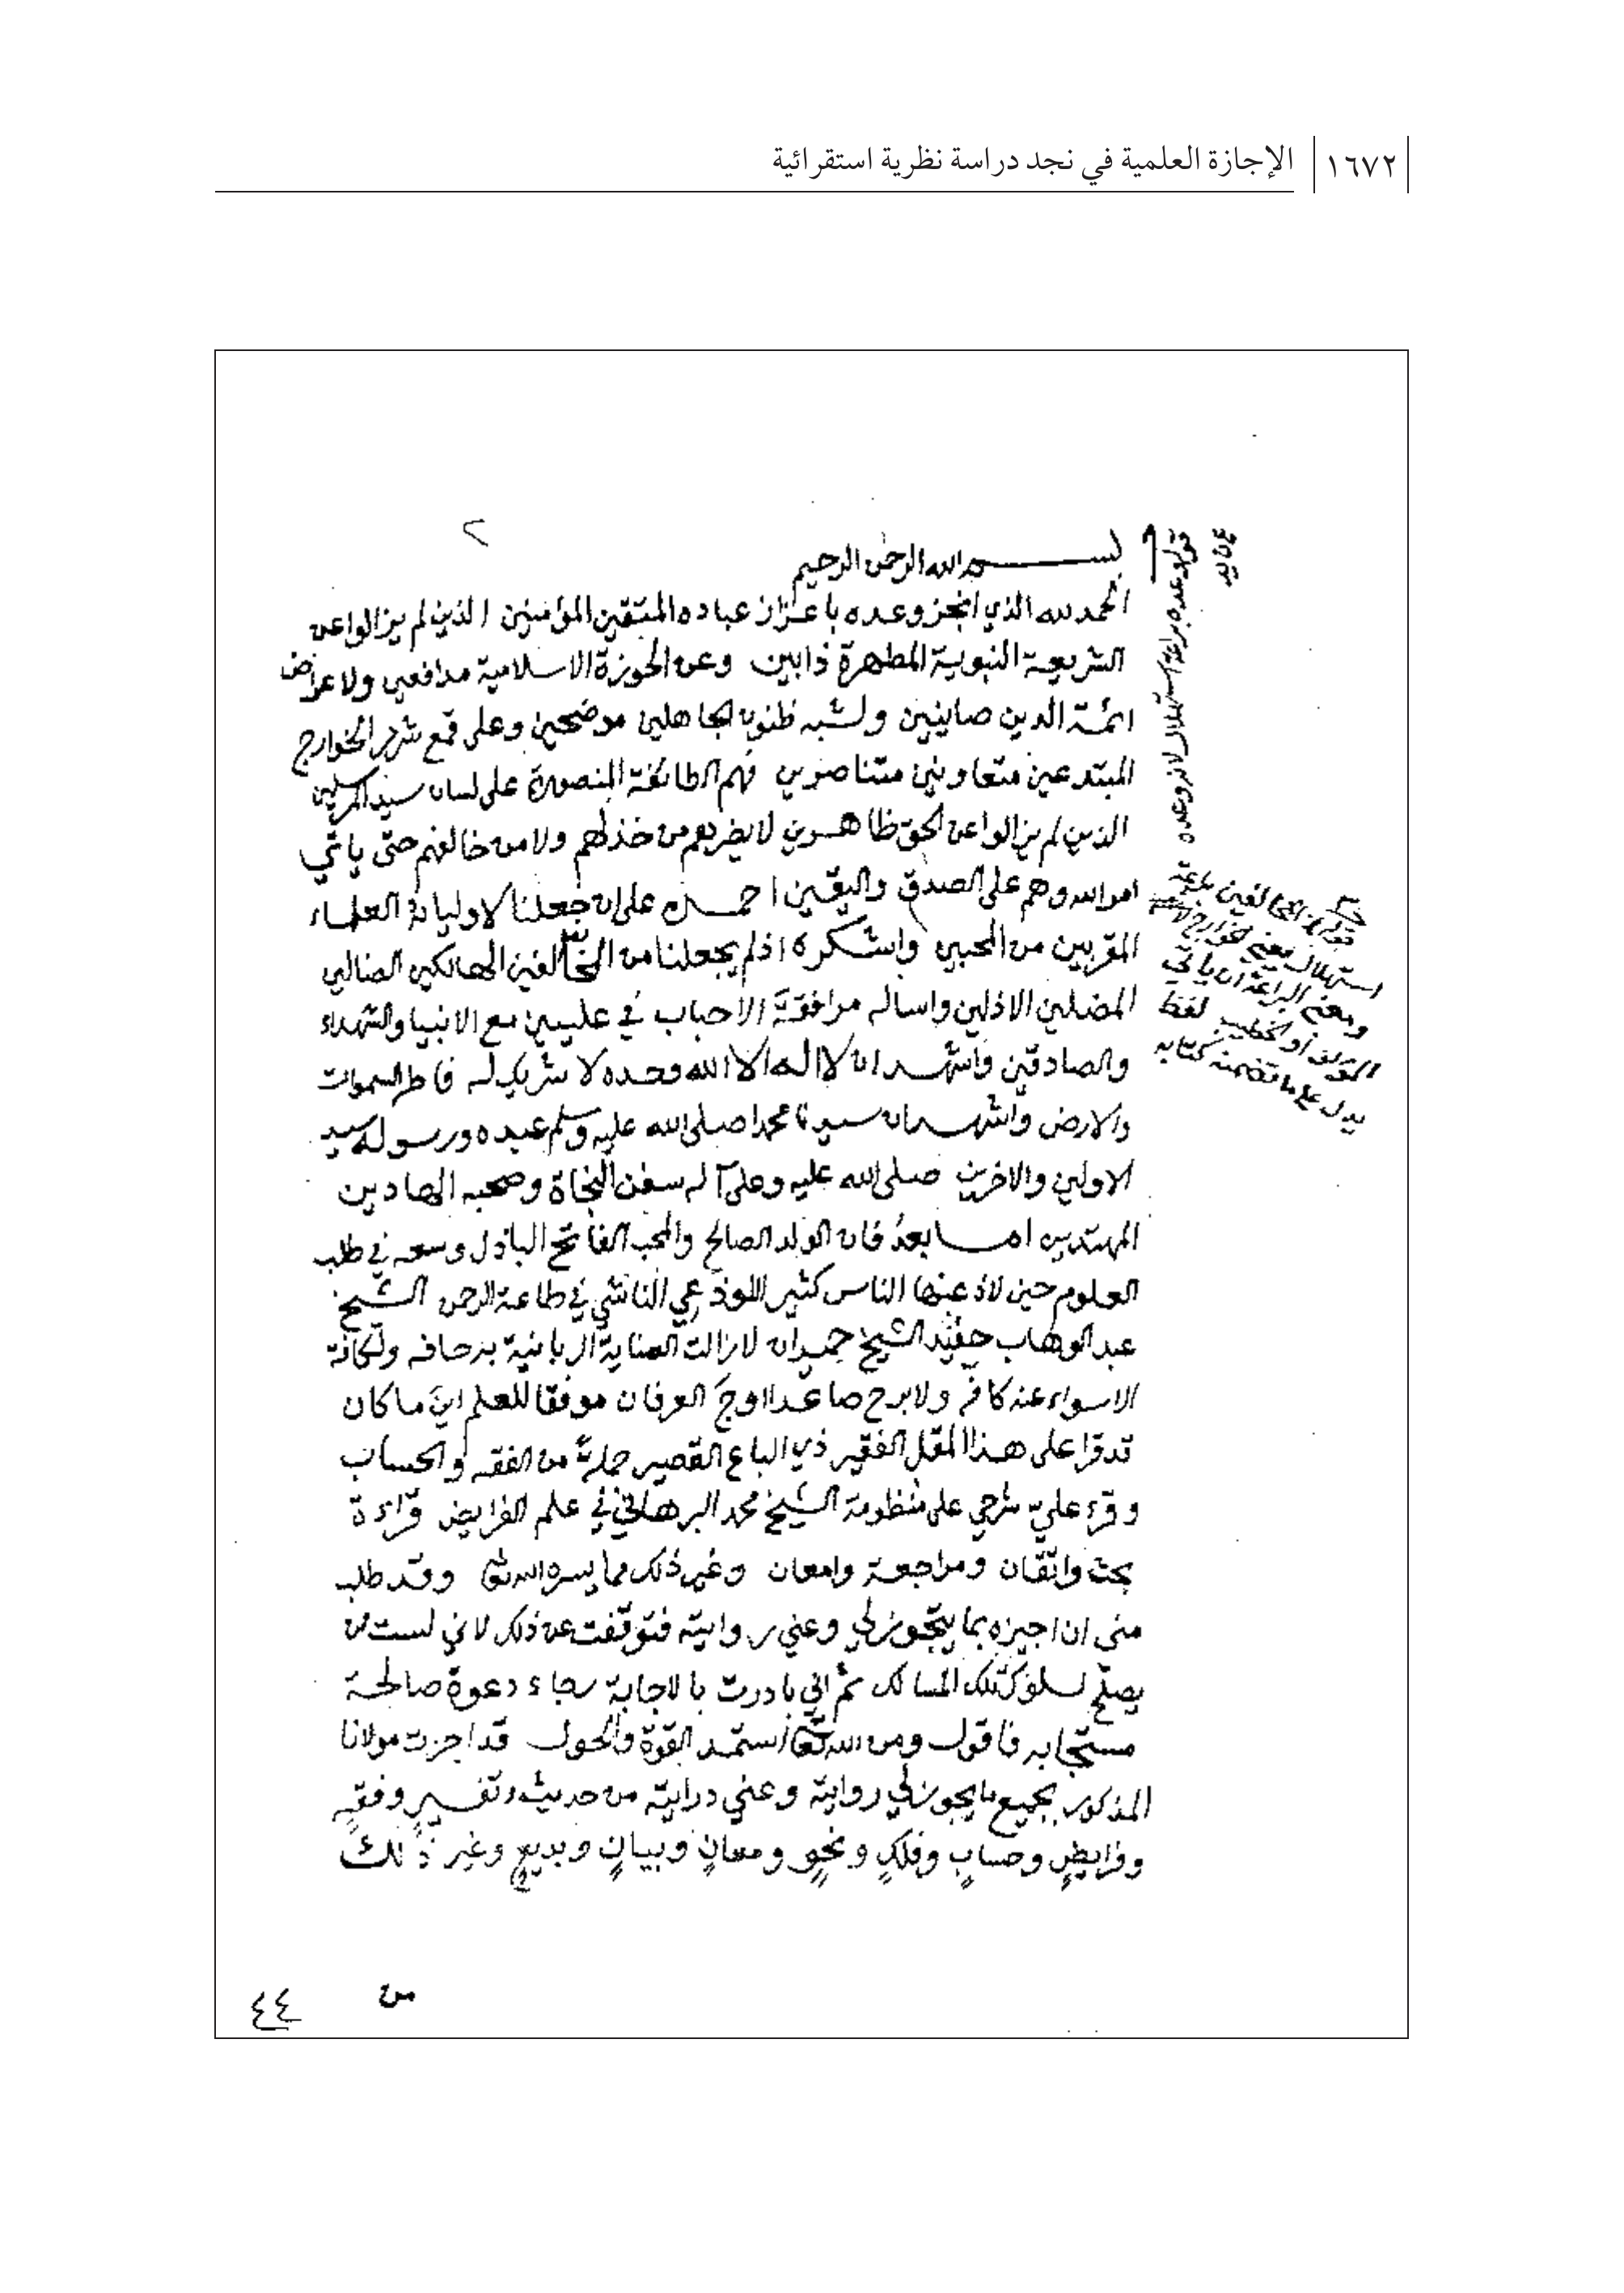 ١٦٧٢ الإجازة العلمية في نجد دراسة نظرية استقرائية
٢
بسم الله الرحمن الرحيم
الحمد لله الذي انجز وعده باعزاز عباده المتقين المؤمنين الذين لم يزالوا عن
الشريعة النبوية المطهرة ذابين وعن الحوزة الاسلامية مدافعين ولاعراض
ائمة الدين صاينين ولشبه ظنون الجاهلين موضحين وعلى قمع شرر الخوارج
المبتدعين متعاونين متناصرين فهم الطائفة المنصورة على لسان سيد المرسلين
الذين لم يزالوا عن الحق ظاهرين لا يضرهم من خذلهم ولا من خالفهم حتى ياتي
امر الله وهم على الصدق واليقين احمده على ان جعلنا لاوليائه العلماء
المقربين من المحبين واشكره اذ لم يجعلنا من المخالفين الهالكين الضالين
المضلين الاذلين واساله مرافقة الاحباب في عليين مع الانبيا والشهداء
والصادقين واشهد ان لا اله الا الله وحده لا شريك له فاطر السموات
والارض واشهد ان سيدنا محمدا صلى الله عليه وسلم عبده ورسوله سيد
الاولين والاخرين صلى الله عليه وعلى آله سفن النجاة وصحبه الهادين
المهتدين اما بعد فان الولد الصالح والمحب الفاتح الباذل وسعه في طلب
العلوم حين لاذ عنها الناس كثير اللوذعي الناشي في طاعة الرحمن الشيخ
عبد الوهاب حفيد الشيخ حميدان لا زالت العناية الربانية به حافه ولكافة
الاسواء عنه كافه ولا برح صاعدا اوج العرفان موفقا للعلم اين ما كان
قد قرا على هذا المقل الفقير ذي الباع القصير جملة من الفقه والحساب
وقرء عليّ شرحي على منظومة الشيخ محمد البرهاني في علم الفرايض قراءة
بحث واتقان ومراجعة وامعان وغير ذلك مما يسره الله تعالى وقد طلب
مني ان اجيزه بما يتجوز لي وعني روايته فتوقفت عن ذلك لاني لست ممن
يصلح لسلوك تلك المسالك ثم اني بادرت بالاجابة رجاء دعوة صالحة
مستجابه فاقول ومن الله تعالى استمد القوة والحول قد اجزت مولانا
المذكور بجميع ما يجوز لي رواية وعني دراية من حديث وتفسير وفقه
وفرايض وحساب وفلك ونحو ومعان وبيان وبديع وغير ذلك
من
٤٤
قوله وعده براعة استهلال لانه وعده
قوله المخالفين براعة
استهلال يعني خوارج
ومعنى البراعة ان ياتي
المؤلف أو الخطيب لفظ
يدل على ما تضمنه كتابه